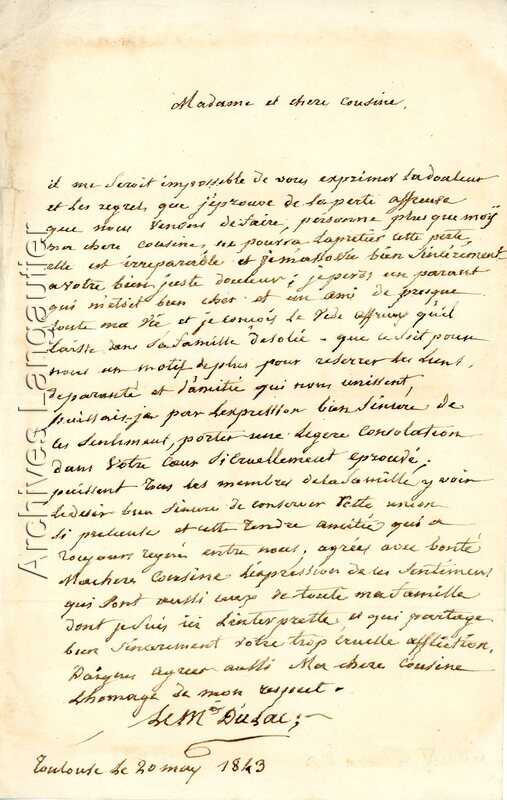 Madame et chere Cousine.
il me Seroit impossible de vous exprimer La douleur
et Les regrets que j'eprouve de La perte affreuse
que nous Venons de faire, personne plus que moÿ
ma chere Cousine, ne pourra Lapretier cette perte
elle est irreparable et je m'assotie bien Sincerement
a votre bien juste douleur ; je perds un parant
qui m'etoit bien cher et un ami de presque
toute ma Vie et je conçois le Vide affreux qu'il
Laisse dans Sa famille désolée - que ce Soit pour
nous un motif de plus pour reserrer Les Liens,
de paranté et d'amitié qui nous unissent,
puissai-je par L'expression bien Sincere de
ces Sentiments, porter une Legere Consolation
dans Votre Cœur Si cruellement eprouvé,
puissent tous Les membres de La famille y voir
Le desir bien Sincere de conserver Cette union
Si pretieuse et cette tendre amitié qui a
toujours regné entre nous. agrées avec bonté
Ma chere Cousine L'expression de ces Sentiments
qui Sont aussi ceux de toute ma famille
dont je Suis ici L'interprette et qui partage
bien Sincerement votre trop cruelle affliction.
Daignes agreer aussi Ma chere Cousine
L'homage de mon respect.
Le Mis DuLac
Toulouse Le 20 may 1843
Archives Langautier